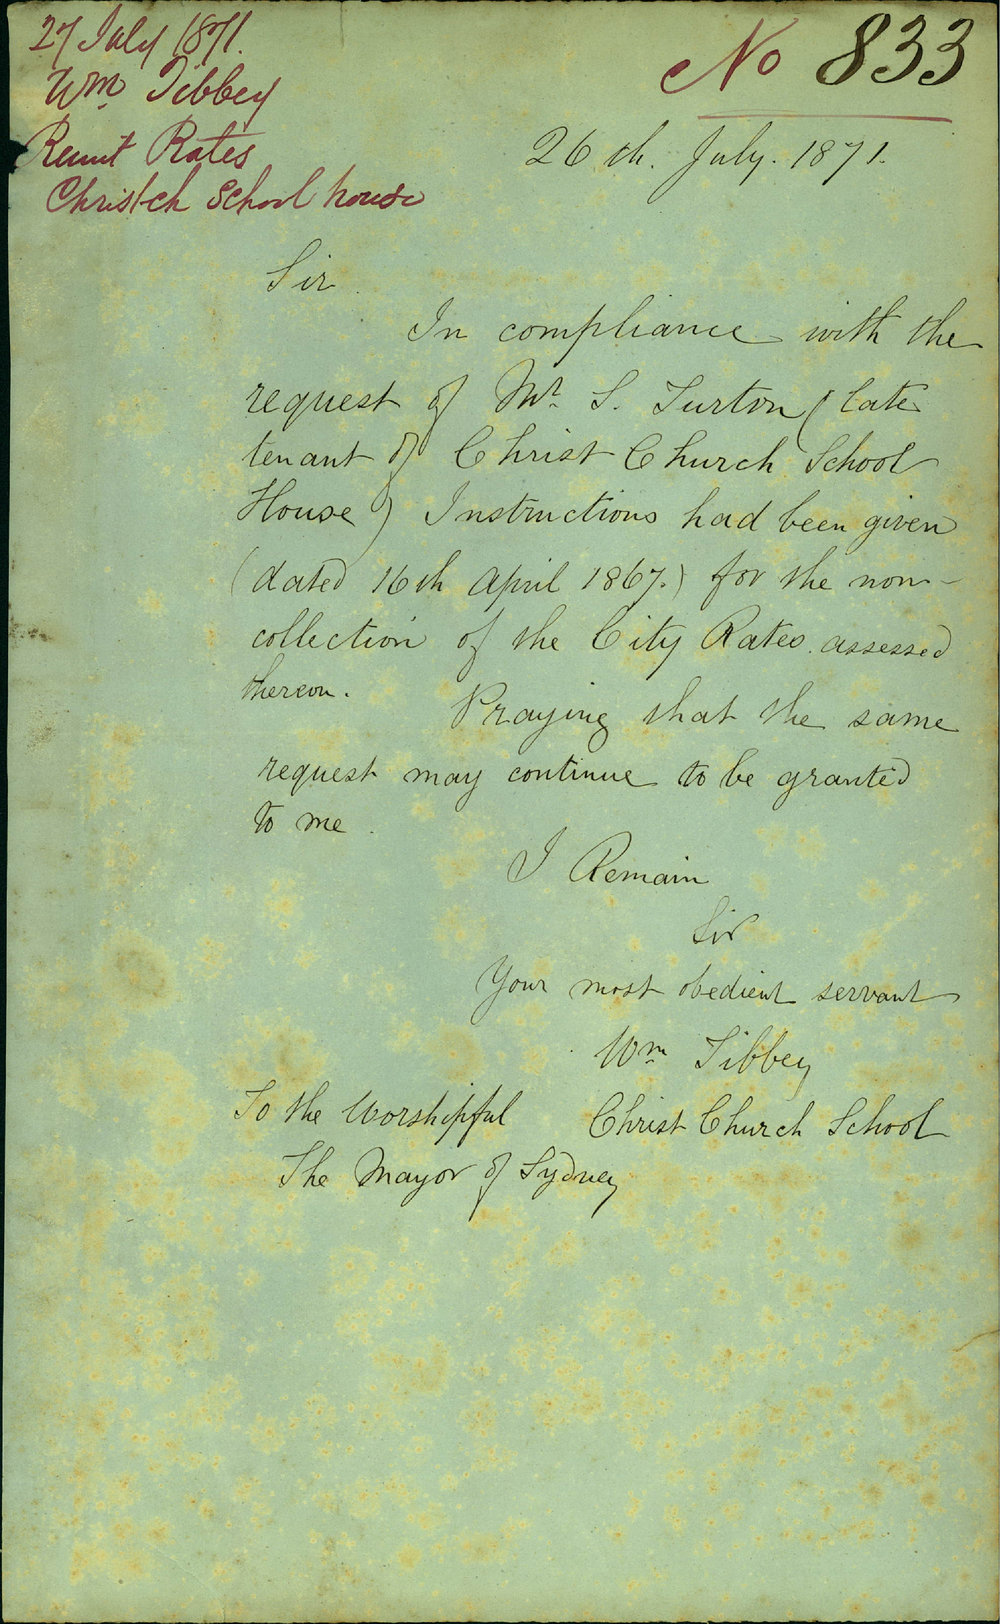 27 July 1871.
Wm Tibbey
Remit Rates
Christch School house
No 833
26th. July. 1871.
Sir
In compliance with the
request of Mr. S. Turton (late
tenant of Christ Church School
House) Instructions had been given
(dated 16th April 1867.) for the non-
collection of the City Rates assessed
thereon.
Praying that the same
request may continue to be granted
to me.
I Remain
Sir
Your most obedient servant
Wm Tibbey
Christ Church School
To the Worshipful
The Mayor of Sydney